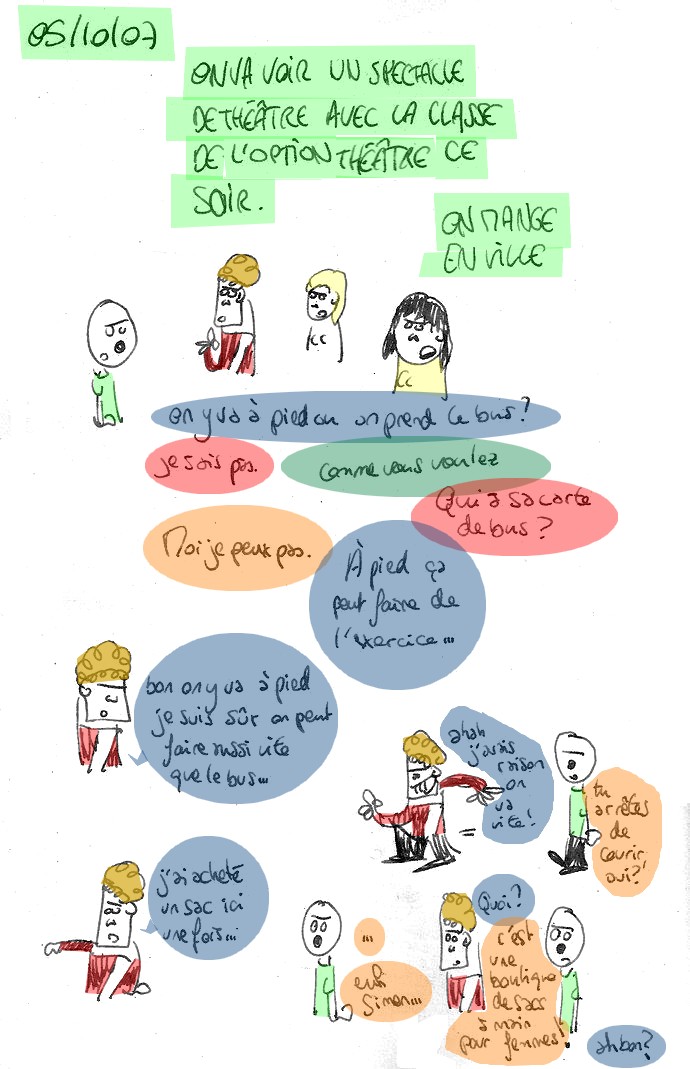 05/10/07
ON VA VOIR UN SPECTACLE
DE THÉÂTRE AVEC LA CLASSE
DE L'OPTION THÉÂTRE CE
SOIR.
ON MANGE
EN VILLE
on y va à pied ou on prend le bus?
je sais pas.
comme vous voulez
Qui a sa carte
de bus?
Moi je peux pas.
À pied ça
peut faire de
l'exercice...
bon on y va à pied
je suis sûr on peut
faire aussi vite
que le bus...
ahah
j'avais
raison
on
va
vite!
tu
arrêtes
de
courir
oui?!
j'ai acheté
un sac ici
une fois...
...
euh
Simon...
Quoi?
c'est
une
boutique
de sacs
à main
pour femmes!
ah bon?